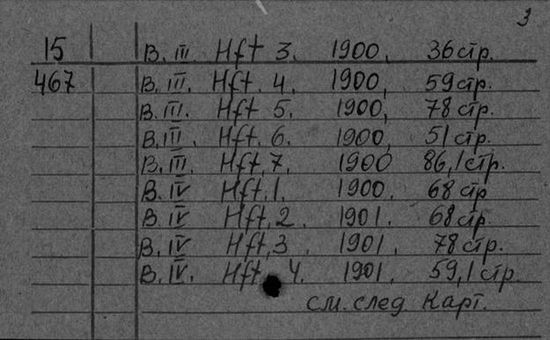 3
15 В. III Hft 3. 1900, 36 стр.
467 В. III. Hft. 4. 1900, 59 стр.
В. III. Hft 5. 1900, 78 стр.
В. III. Hft. 6. 1900, 51 стр.
В. III. Hft, 7. 1900 86,1 стр.
В. IV Hft, 1. 1900. 68 стр
В. IV Hft, 2. 1901. 68 стр.
В. IV Hft, 3. 1901, 78 стр.
В. IV. Hft, 4. 1901. 59,1 стр.
см. след Карт.